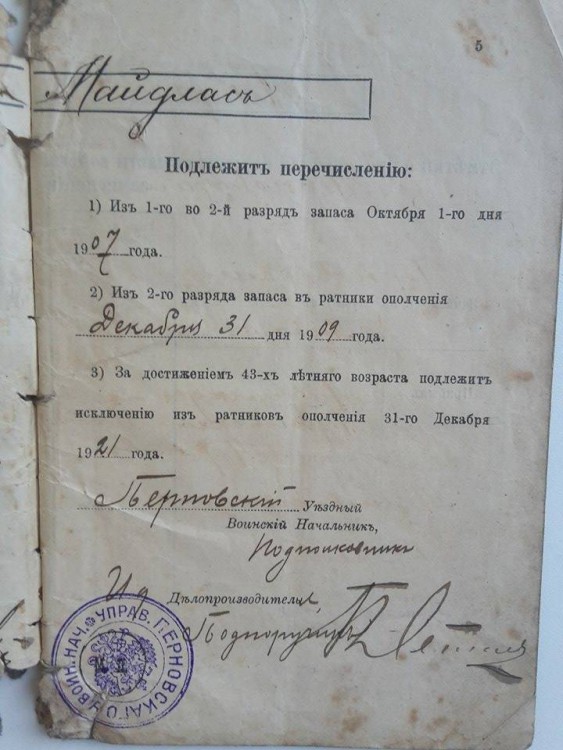 5
Майдласъ
Подлежитъ перечисленію:
1) Изъ 1-го во 2-й разрядъ запаса Октября 1-го дня
1907 года.
2) Изъ 2-го разряда запаса въ ратники ополченія
Декабря 31 дня 1909 года.
3) За достиженіемъ 43-хъ лѣтняго возраста подлежитъ
исключенію изъ ратниковъ ополченія 31-го Декабря
1921 года.
Перновскій Уѣздный
Воинскій Начальникъ,
Подполковникъ
И д Дѣлопроизводителя
Подпоручикъ
УПРАВ. ПЕРНОВСКАГО У. ВОИН. НАЧ.